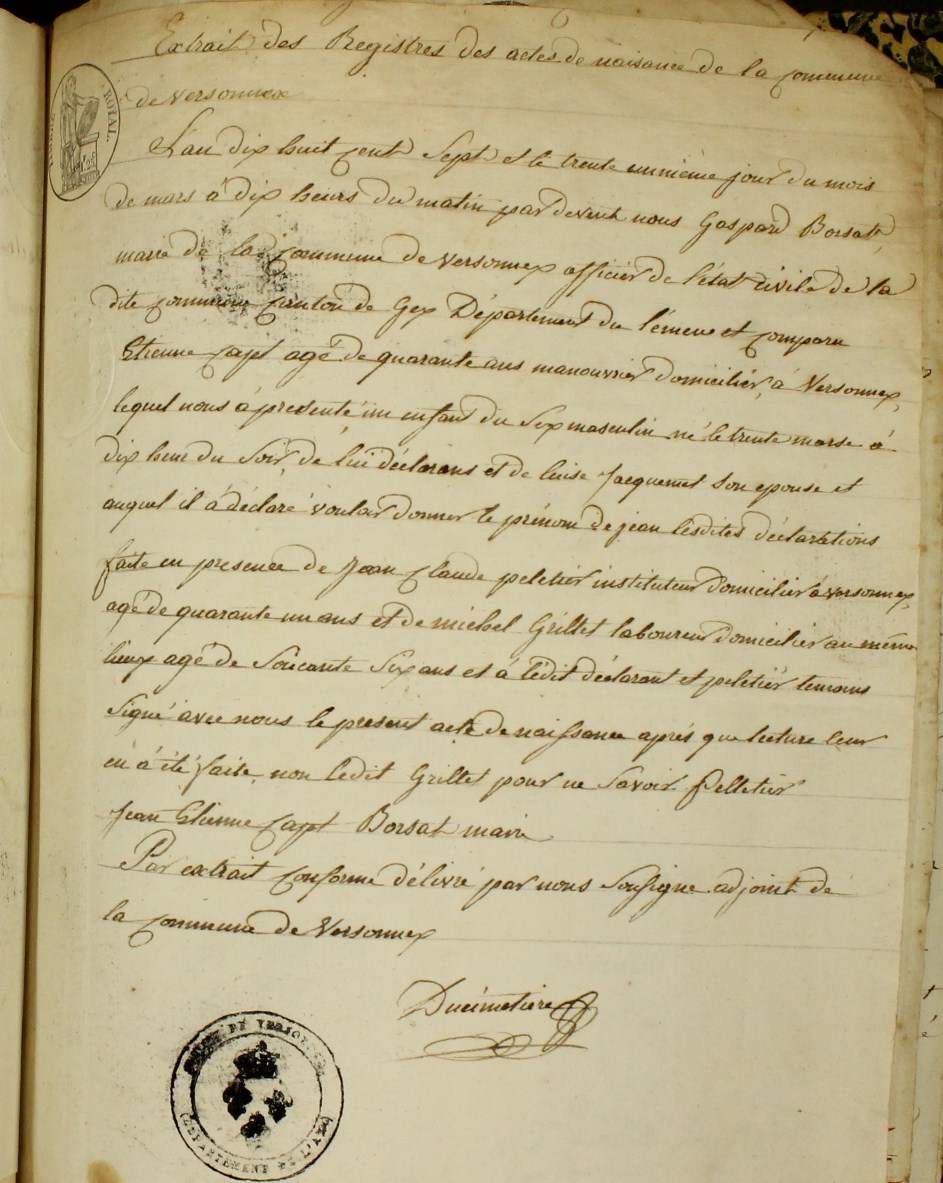 Extrait des Registres des actes de naisance de la commune
de Versonnex
L'an dix huit cent Sept et le trente unnième jour du mois
de mars à dix heurs du matin par devent nous Gaspard Borsat
maire de la commune de Versonnex officier de l'état civile de la
dite commune canton de Gex Département du l'émene et comparu
Etienne Capt agé de quarante ans manouvrier domicilier à Versonnex,
lequel nous à présenté un enfant du Sex masculin né le trente marse à
dix heur du Soir, de lui déclarans et de luise Jacquemet son epouse et
auquel il à déclaré vouloir donner le prénom de jean lesdites déclarations
faite en presence de Jean Claude peletier instituteur domicilier à versonnex,
agé de quarante un ans et de michel Grillet laboureur domicilier au même
lieux agé de Soicante Six ans et à lédit déclarant et peletier temoins
Signé avec nous le present acte de naissance aprés que lecture leur
en à été faite non ledit Grillet pour ne Savoir Pelletier
Jean Etienne Capt Borsat maire
Par extrait conforme délivré par nous Sousigné adjoint de
la commune de Versonnex
Ducimetiere
ROYAL.
DE VERSONNEX
DÉPARTEMENT DE L'AIN